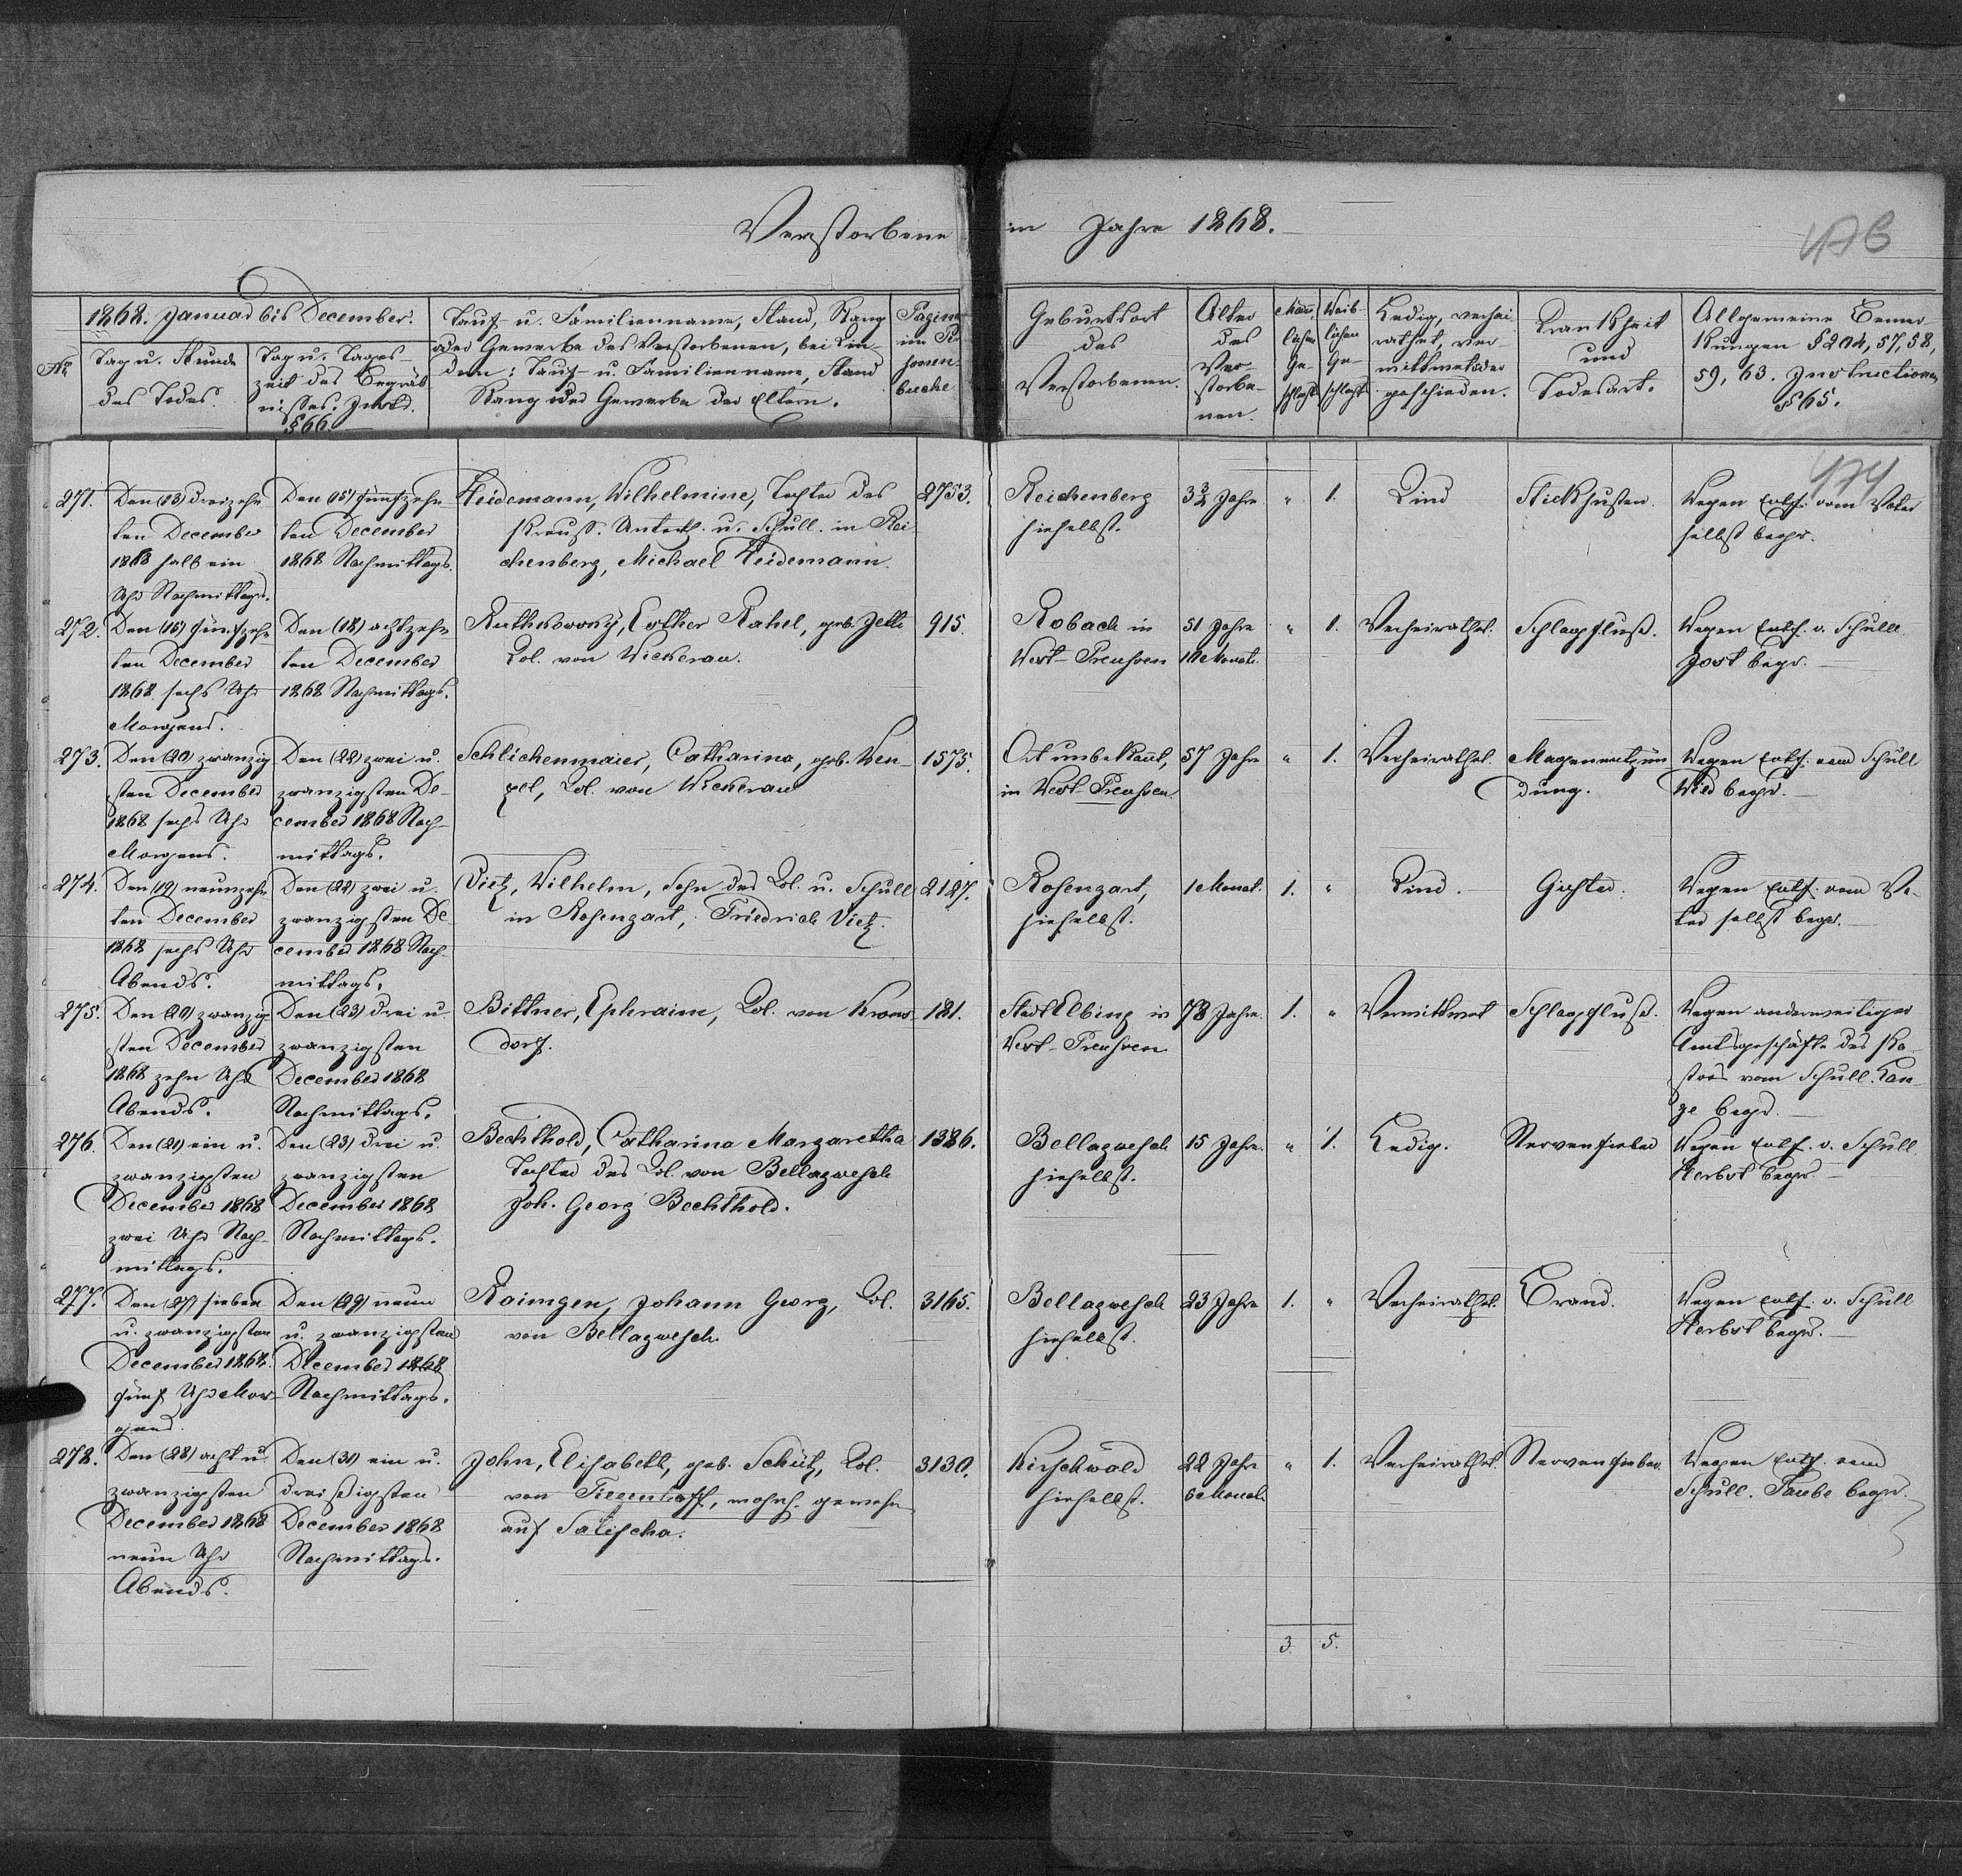 Verstorbene im Jahre 1868.
178
1868. Januar bis December.
No
Tag u. Stunde
des Todes.
Tag u. Tages-
zeit des Begräb-
nisses. Instr.
§ 66.
Tauf- u. Familienname, Stand, Rang
oder Gewerbe des Verstorbenen, bei Kin-
dern: Tauf- u. Familienname, Stand
Rang oder Gewerbe der Eltern.
Pagina
im Per-
sonen-
buche
Geburtsort
des
Verstorbenen.
Alter
des
Ver-
storbe-
nen.
Männ-
lichen
Ge-
schlechts
Weib-
lichen
Ge-
schlechts
Ledig, verhei-
rathet, ver-
wittwet oder
geschieden.
Krankheit
und
Todesart.
Allgemeine Bemer-
kungen § 204, 57, 58,
59, 63. Instruction
§ 65.
271.
Den (13) dreizehn-
ten December
1868 halb ein
Uhr Nachmittags.
Den (15) fünfzehn-
ten December
1868 Nachmittags.
Heidemann, Wilhelmine, Tochter des
Preuss. Unterth. u. Schull. in Rei-
chenberg, Michael Heidemann.
2753.
Reichenberg
hieselbst.
3¾ Jahre
"
1.
Kind
Stickhusten.
Wegen Entf. vom Vater
selbst begr.
272.
Den (15) fünfzehn-
ten December
1868 sechs Uhr
Morgens.
Den (18) achtzehn-
ten December
1868 Nachmittags.
Ruthkowsky, Esther Rahel, geb. Jelli
Col. von Wickerau.
915.
Robach in
West-Preussen
51 Jahre
10 Monate.
"
1.
Verheirathet.
Schlagfluß.
Wegen Entf. v. Schull.
Jost begr.
273.
Den (20) zwanzig-
sten December
1868 sechs Uhr
Morgens.
Den (22) zwei u.
zwanzigsten De-
cember 1868 Nach-
mittags.
Schlichenmaier, Catharina, geb. Wen-
zel, Col. von Wickerau
1575.
Ort unbekannt,
in West-Preussen.
57 Jahre
"
1.
Verheirathet.
Magenentzün
dung.
Wegen Entf. vom Schull
Wied begr.
274.
Den (19) neunzehn-
ten December
1868 sechs Uhr
Abends.
Den (22) zwei u.
zwanzigsten De-
cember 1868 Nach-
mittags.
Vietz, Wilhelm, Sohn des Col. u. Schull
in Rosengart, Friedrich Vietz.
2127.
Rosengart,
hieselbst.
1 Monat.
1.
"
Kind.
Gichter.
Wegen Entf. vom Va-
ter selbst begr.
275.
Den (20) zwanzig-
sten December
1868 zehn Uhr
Abends.
Den (23) drei u.
zwanzigsten
December 1868
Nachmittags.
Bittner, Ephraim, Col. von Krons-
dorf.
181.
Stadt Elbing in
West-Preussen
78 Jahre.
1.
"
Verwittwet
Schlagfluß.
Wegen anderweitiger
Amtsgeschäfte des Pa-
stors vom Schull. Lan-
ge begr.
276.
Den (21) ein u.
zwanzigsten
December 1868
zwei Uhr Nach-
mittags.
Den (23) drei u.
zwanzigsten
December 1868
Nachmittags.
Bechthold, Catharina Margaretha
Tochter des Col. von Bellagwesch
Joh. Georg Bechthold.
1386.
Bellagwesch
hieselbst.
15 Jahre.
"
1.
Ledig.
Nervenfieber
Wegen Entf. v. Schull.
Herbst begr.
277.
Den (27) sieben
u. zwanzigsten
December 1868.
fünf Uhr Mor-
gens.
Den (29) neun
u. zwanzigsten
December 1868
Nachmittags.
Raimgen, Johann Georg, Col.
von Bellagwesch.
3165.
Bellagwesch
hieselbst.
23 Jahre
1.
"
Verheirathet.
Brand.
Wegen Entf. v. Schull
Herbst begr.
278.
Den (28) acht u.
zwanzigsten
December 1868
neun Uhr
Abends.
Den (31) ein u.
dreißigsten
December 1868
Nachmittags.
John, Elisabeth, geb. Schütz, Col.
von Tiegenhoff, wohnh. gewesen
auf Salischa.
3130.
Kirschwald
hieselbst.
22 Jahre
6 Monate
"
1.
Verheirathet.
Nervenfieber.
Wegen Entf. vom
Schull. Taube begr.
3.
5.